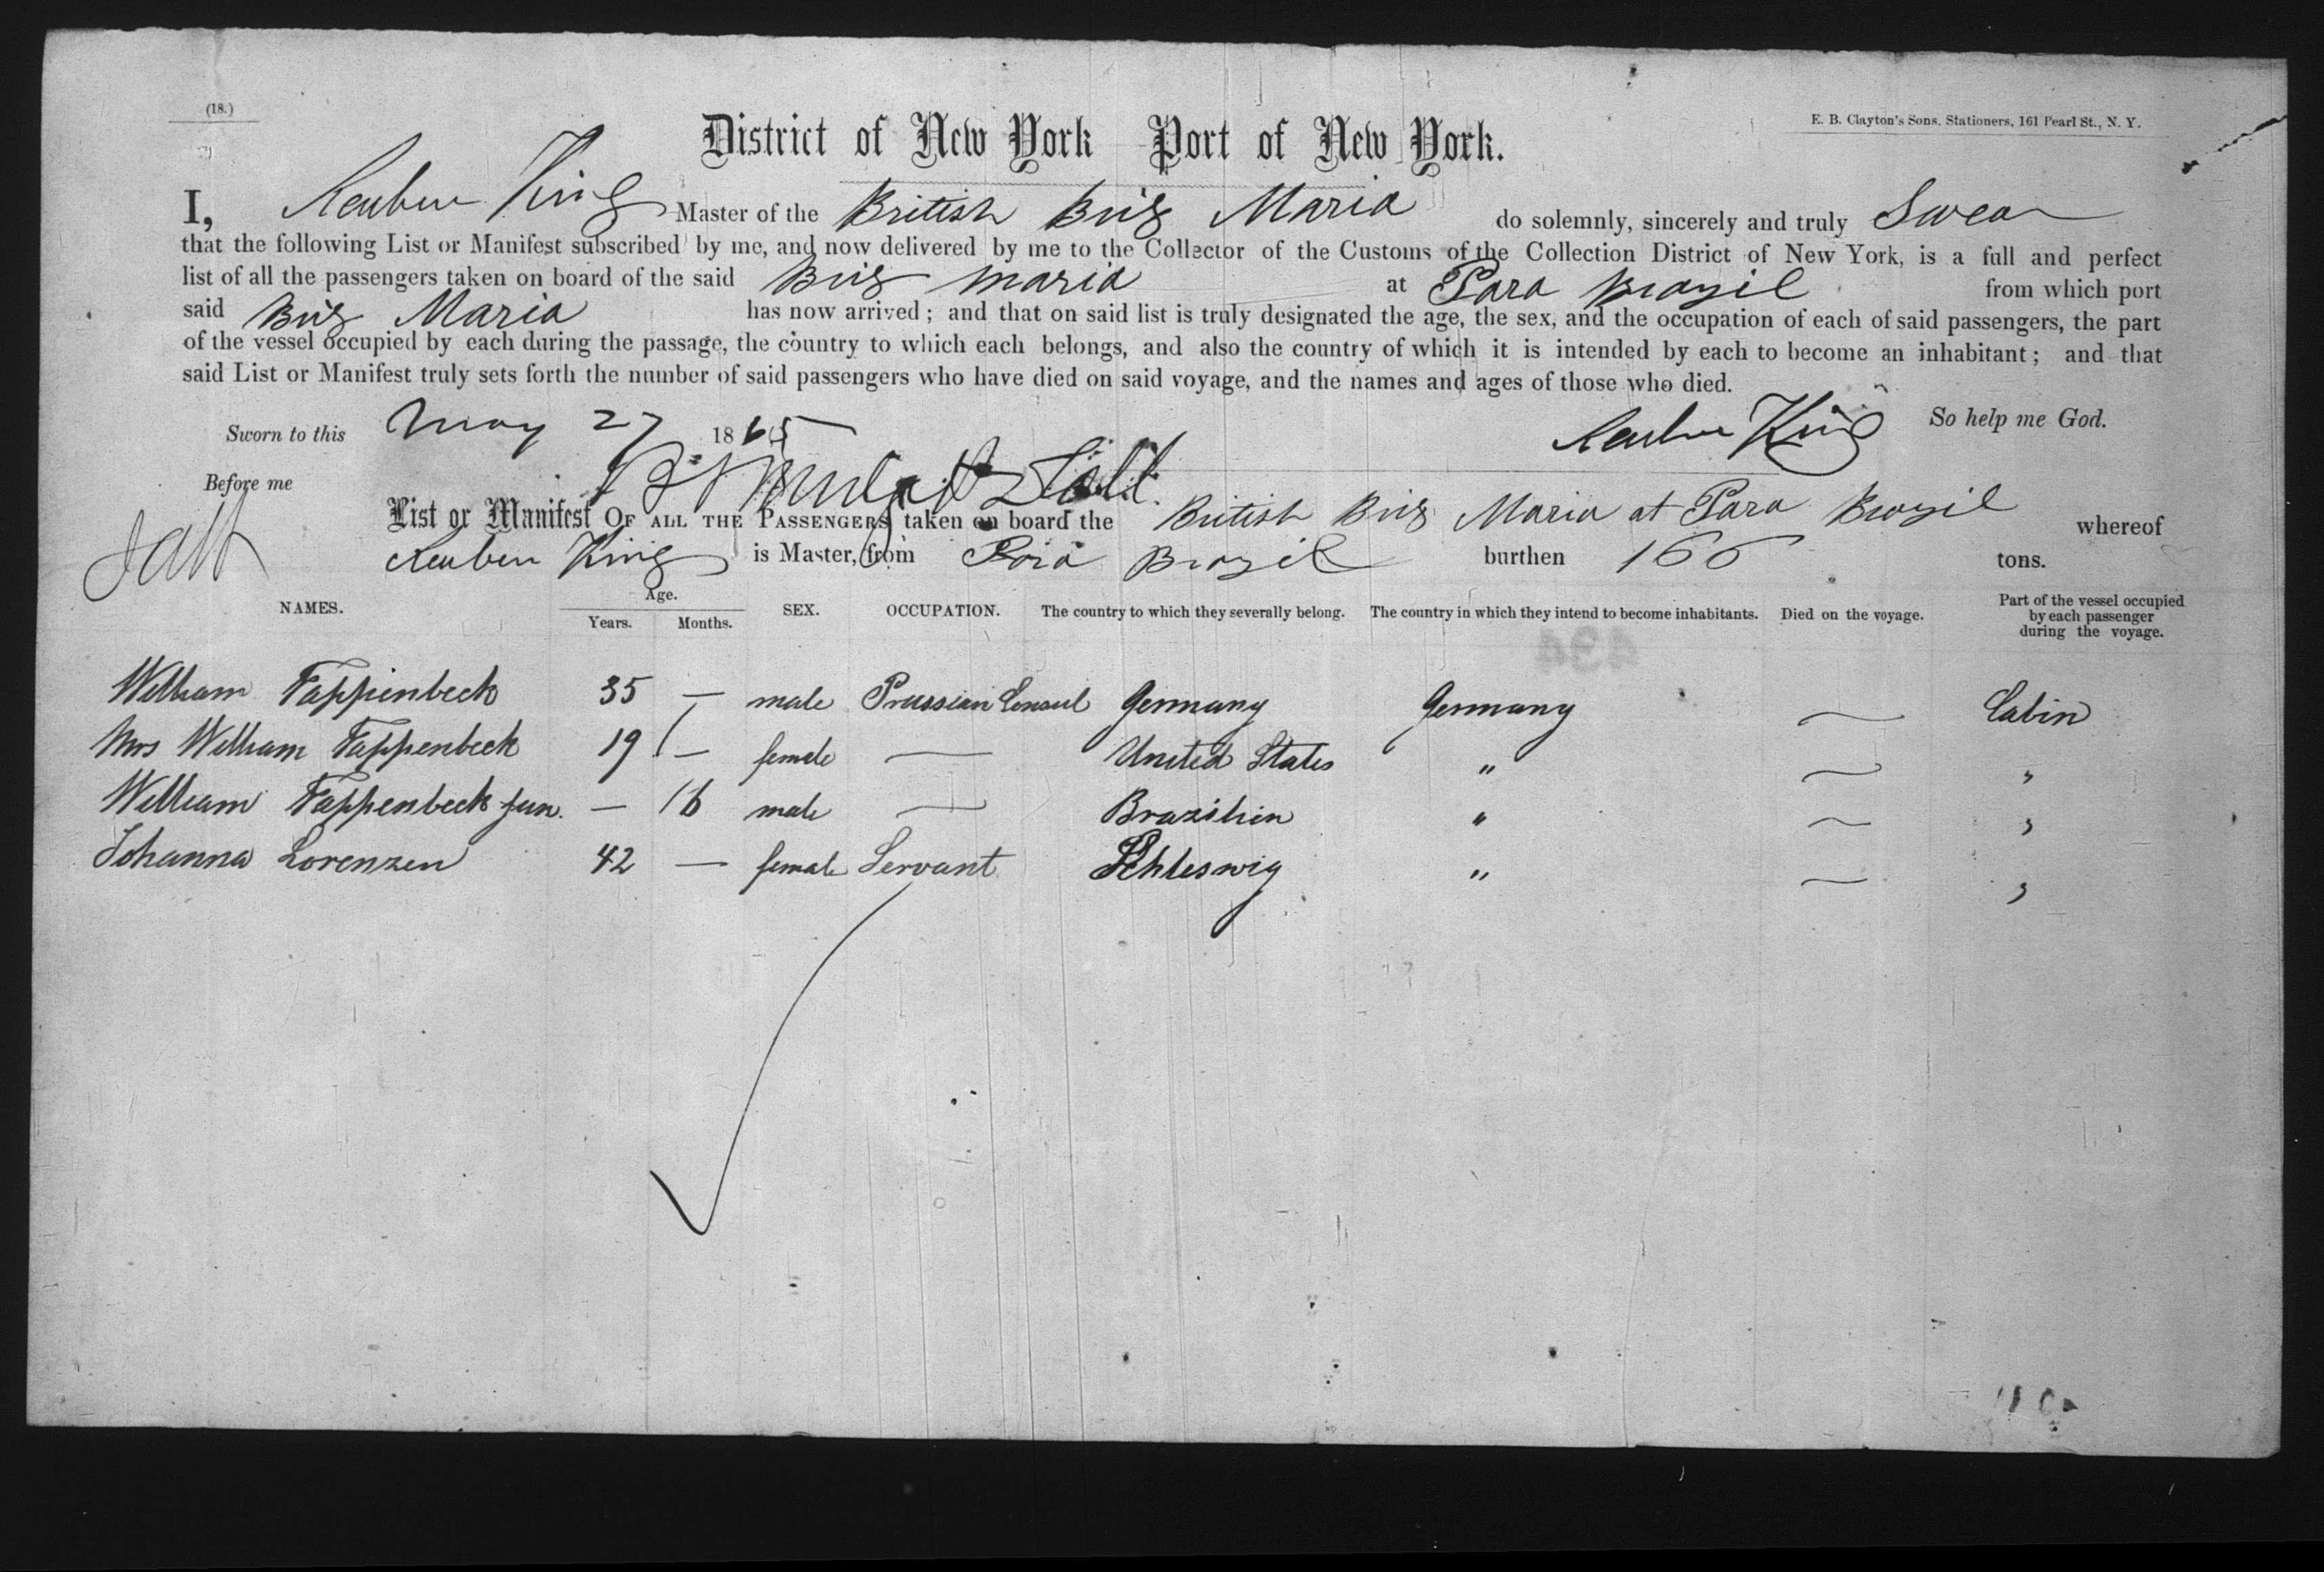 (18.)
E. B. Clayton's Sons, Stationers, 161 Pearl St., N. Y.
District of New York Port of New York.
I, Reuben King Master of the British Brig Maria do solemnly, sincerely and truly Swear
that the following List or Manifest subscribed by me, and now delivered by me to the Collector of the Customs of the Collection District of New York, is a full and perfect
list of all the passengers taken on board of the said Brig Maria at Para Brazil from which port
said Brig Maria has now arrived; and that on said list is truly designated the age, the sex, and the occupation of each of said passengers, the part
of the vessel occupied by each during the passage, the country to which each belongs, and also the country of which it is intended by each to become an inhabitant; and that
said List or Manifest truly sets forth the number of said passengers who have died on said voyage, and the names and ages of those who died.
Sworn to this May 27 1865 Reuben King So help me God.
Before me
List or Manifest OF ALL THE PASSENGERS taken on board the British Brig Maria at Para Brazil whereof
Reuben King is Master, from Para Brazil burthen 166 tons.
NAMES. Age. Years. Months. SEX. OCCUPATION. The country to which they severally belong. The country in which they intend to become inhabitants. Died on the voyage. Part of the vessel occupied by each passenger during the voyage.
William Tappenbeck 35 — male Prussian Consul Germany Germany — Cabin
Mrs William Tappenbeck 19 — female — United States " — "
William Tappenbeck jun. — 16 male — Brazilien " — "
Johanna Lorenzen 42 — female Servant Schleswig " — "